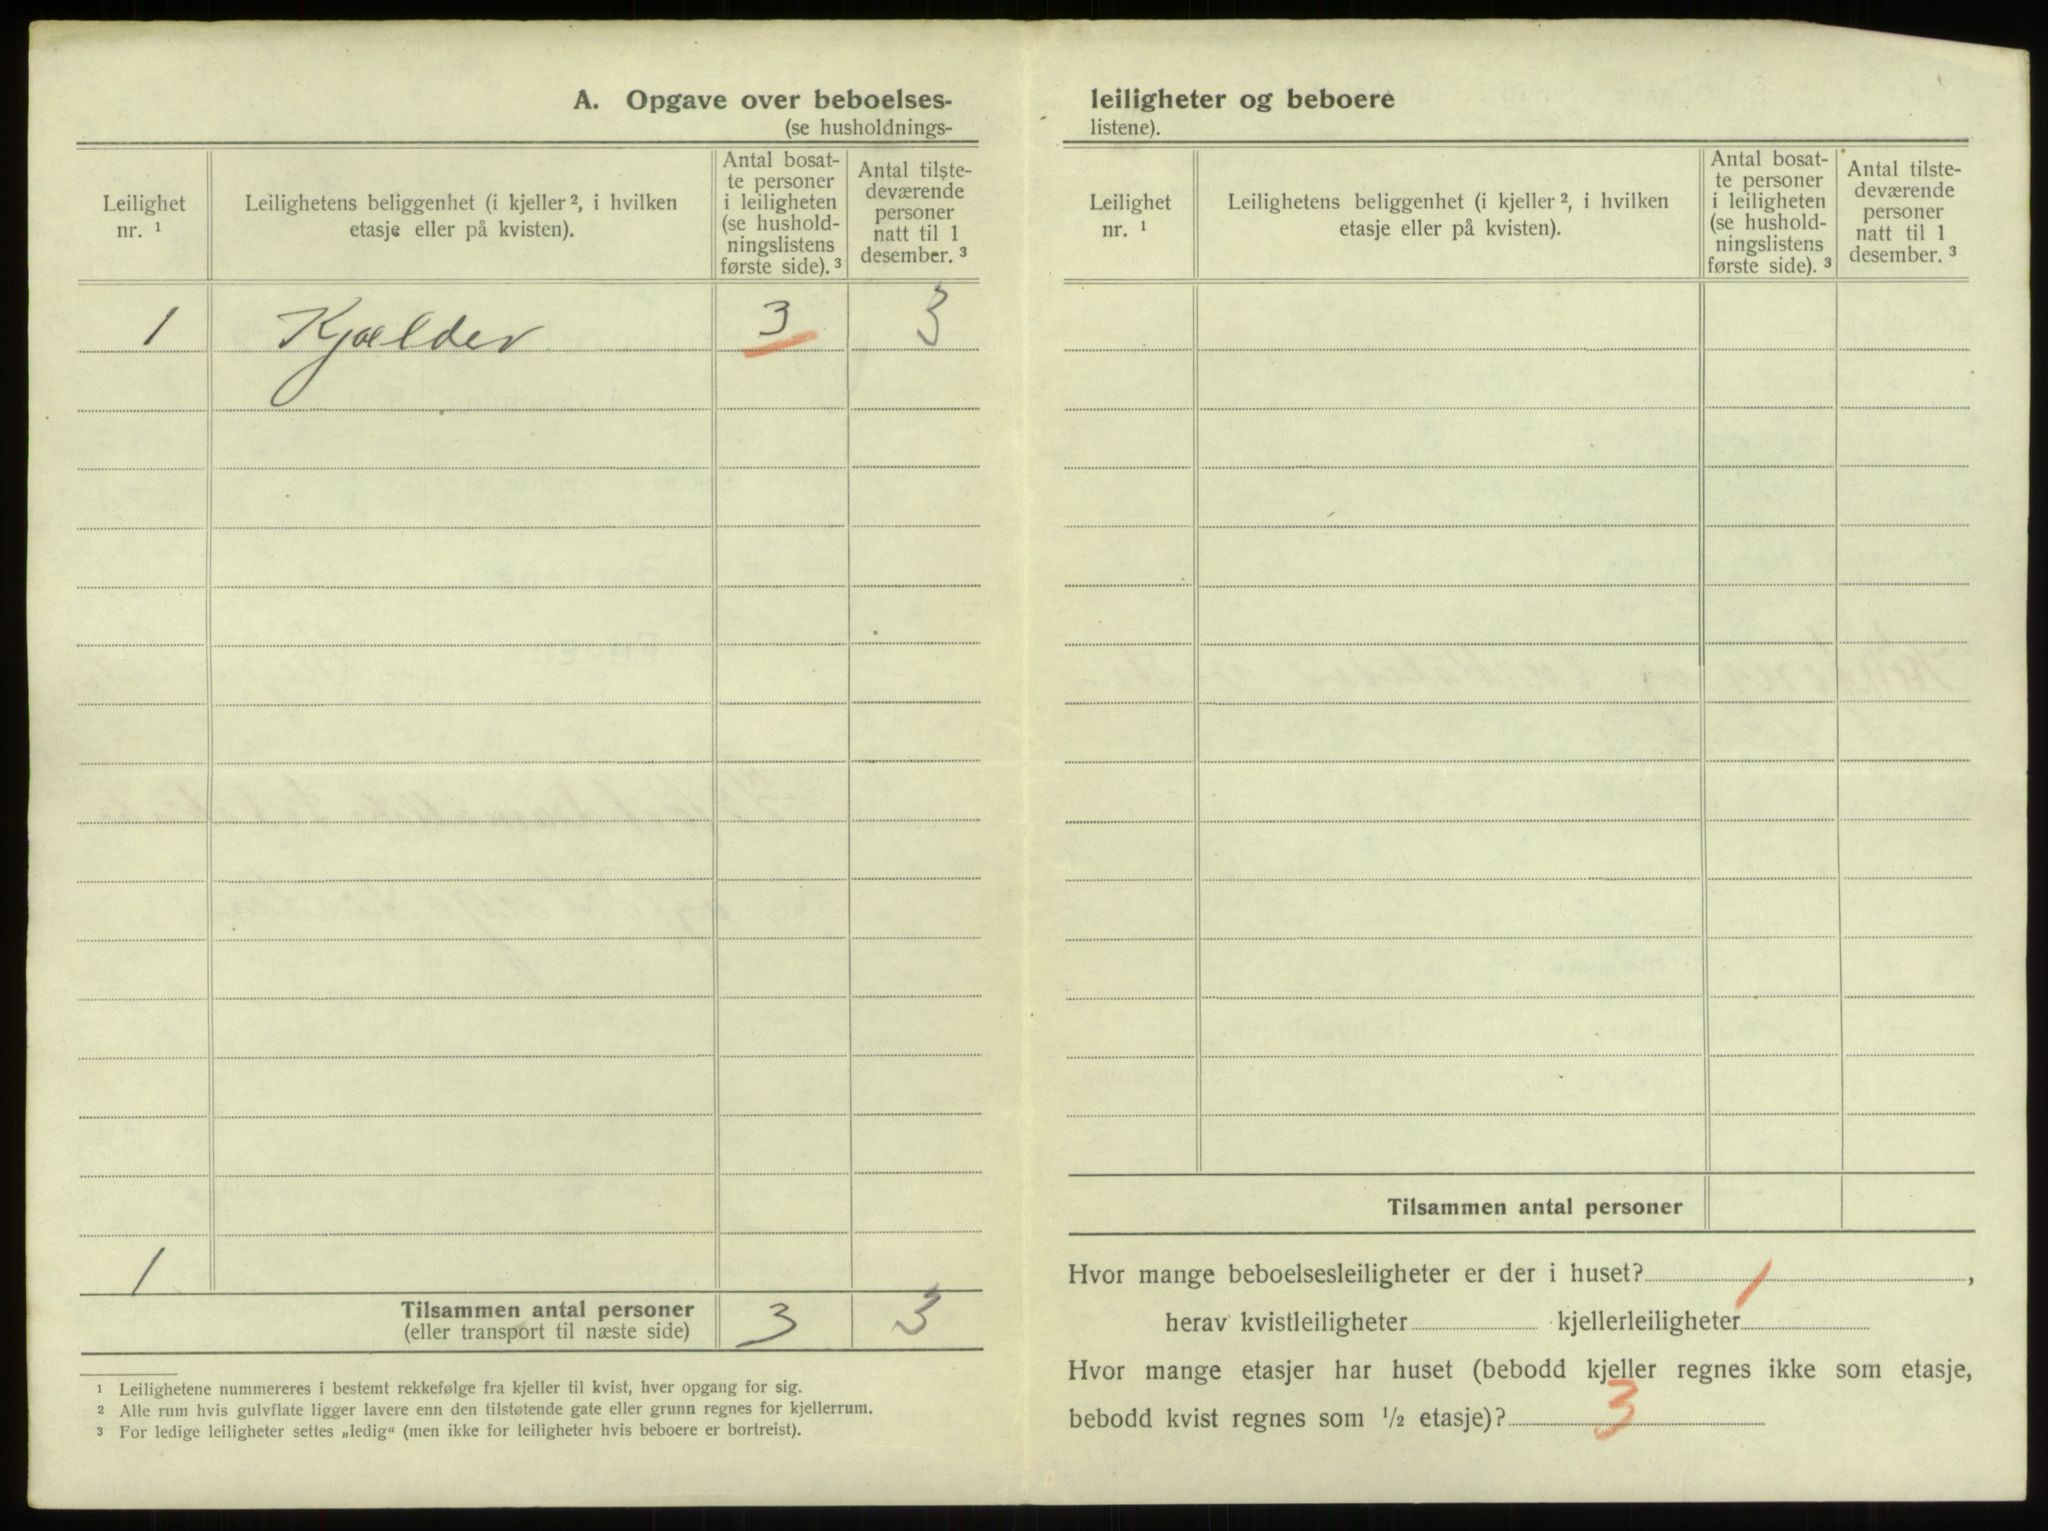 A. Opgave over beboelses-
(se husholdnings-
Leilighet
nr. ¹
Leilighetens beliggenhet (i kjeller ², i hvilken
etasje eller på kvisten).
Antal bosat-
te personer
i leiligheten
(se hushold-
ningslistens
første side). ³
Antal tilste-
deværende
personer
natt til 1
desember. ³
1 Kjælder 3 3
1
Tilsammen antal personer
(eller transport til næste side)
3 3
¹ Leilighetene nummereres i bestemt rekkefølge fra kjeller til kvist, hver opgang for sig.
² Alle rum hvis gulvflate ligger lavere enn den tilstøtende gate eller grunn regnes for kjellerrum.
³ For ledige leiligheter settes „ledig“ (men ikke for leiligheter hvis beboere er bortreist).
leiligheter og beboere
listene).
Leilighet
nr. ¹
Leilighetens beliggenhet (i kjeller ², i hvilken
etasje eller på kvisten).
Antal bosat-
te personer
i leiligheten
(se hushold-
ningslistens
første side). ³
Antal tilste-
deværende
personer
natt til 1
desember. ³
Tilsammen antal personer
Hvor mange beboelsesleiligheter er der i huset? 1,
herav kvistleiligheter kjellerleiligheter
Hvor mange etasjer har huset (bebodd kjeller regnes ikke som etasje,
bebodd kvist regnes som ½ etasje)? 3